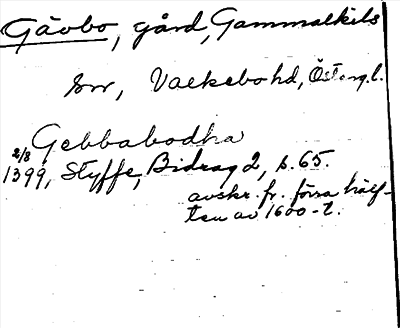 Gävbo, gård, Gammalkils
sn, Valkebo hd, Östergl.
Gebbabodha
2/8
1399, Styffe, Bidrag 2, s. 65.
avskr. fr. förra hälf-
ten av 1600-t.